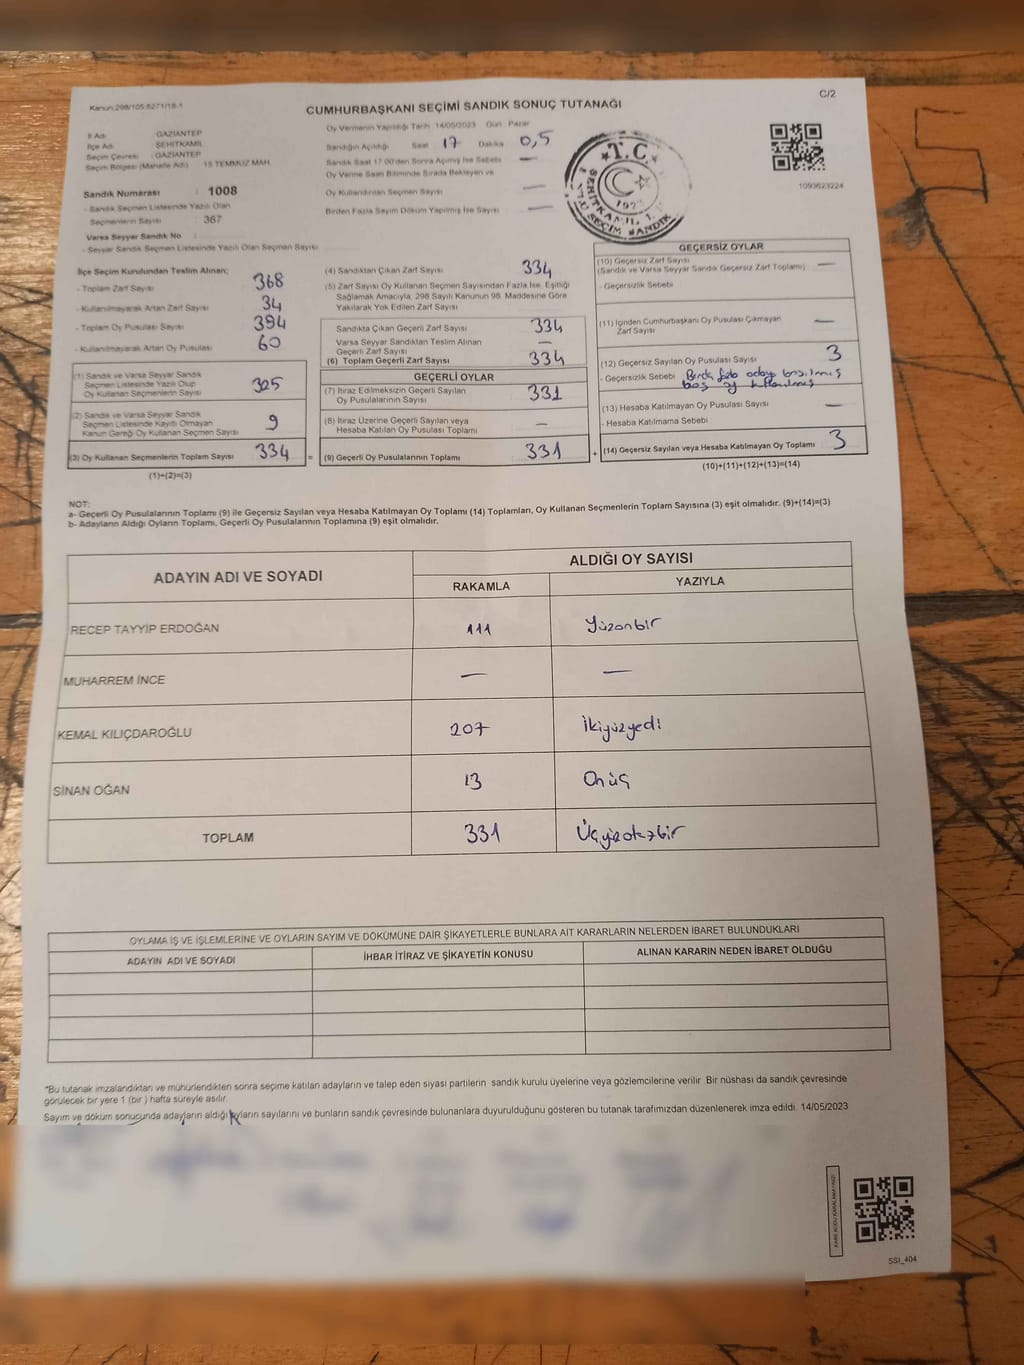 Kanun:298/105 6271/18-1
C/2
CUMHURBAŞKANI SEÇİMİ SANDIK SONUÇ TUTANAĞI
İl Adı : GAZİANTEP
İlçe Adı : ŞEHİTKAMİL
Seçim Çevresi : GAZİANTEP
Seçim Bölgesi (Mahalle Adı) : 15 TEMMUZ MAH.
Sandık Numarası : 1008
- Sandık Seçmen Listesinde Yazılı Olan
Seçmenlerin Sayısı : 367
Varsa Seyyar Sandık No :
- Seyyar Sandık Seçmen Listesinde Yazılı Olan Seçmen Sayısı :
Oy Vermenin Yapıldığı Tarih 14/05/2023 Gün : Pazar
Sandığın Açıldığı Saat 17 Dakika 0,5
Sandık Saat 17.00'den Sonra Açılmış İse Sebebi —
Oy Verme Saati Bitiminde Sırada Bekleyen ve
Oy Kullandırılan Seçmen Sayısı —
Birden Fazla Sayım Döküm Yapılmış İse Sayısı —
T.C.
ŞEHİTKAMİL
1923
SEÇİM SANDIK
1090623224
İlçe Seçim Kurulundan Teslim Alınan;
- Toplam Zarf Sayısı 368
- Kullanılmayarak Artan Zarf Sayısı 34
- Toplam Oy Pusulası Sayısı 394
- Kullanılmayarak Artan Oy Pusulası 60
(1) Sandık ve Varsa Seyyar Sandık
Seçmen Listesinde Yazılı Olup
Oy Kullanan Seçmenlerin Sayısı 325
(2) Sandık ve Varsa Seyyar Sandık
Seçmen Listesinde Kayıtlı Olmayan
Kanun Gereği Oy Kullanan Seçmen Sayısı 9
(3) Oy Kullanan Seçmenlerin Toplam Sayısı 334 =
(1)+(2)=(3)
(4) Sandıktan Çıkan Zarf Sayısı 334
(5) Zarf Sayısı Oy Kullanan Seçmen Sayısından Fazla İse, Eşitliği
Sağlamak Amacıyla, 298 Sayılı Kanunun 98. Maddesine Göre
Yakılarak Yok Edilen Zarf Sayısı
Sandıkta Çıkan Geçerli Zarf Sayısı 334
Varsa Seyyar Sandıktan Teslim Alınan
Geçerli Zarf Sayısı —
(6) Toplam Geçerli Zarf Sayısı 334
GEÇERLİ OYLAR
(7) İtiraz Edilmeksizin Geçerli Sayılan
Oy Pusulalarının Sayısı 331
(8) İtiraz Üzerine Geçerli Sayılan veya
Hesaba Katılan Oy Pusulası Toplamı —
(9) Geçerli Oy Pusulalarının Toplamı 331 +
GEÇERSİZ OYLAR
(10) Geçersiz Zarf Sayısı
(Sandık ve Varsa Seyyar Sandık Geçersiz Zarf Toplamı) —
- Geçersizlik Sebebi
(11) İçinden Cumhurbaşkanı Oy Pusulası Çıkmayan
Zarf Sayısı —
(12) Geçersiz Sayılan Oy Pusulası Sayısı 3
- Geçersizlik Sebebi Birden fazla adaya basılmış
boş oy kullanılmış
(13) Hesaba Katılmayan Oy Pusulası Sayısı —
- Hesaba Katılmama Sebebi
(14) Geçersiz Sayılan veya Hesaba Katılmayan Oy Toplamı 3
(10)+(11)+(12)+(13)=(14)
NOT:
a- Geçerli Oy Pusulalarının Toplamı (9) ile Geçersiz Sayılan veya Hesaba Katılmayan Oy Toplamı (14) Toplamları, Oy Kullanan Seçmenlerin Toplam Sayısına (3) eşit olmalıdır. (9)+(14)=(3)
b- Adayların Aldığı Oyların Toplamı, Geçerli Oy Pusulalarının Toplamına (9) eşit olmalıdır.
ADAYIN ADI VE SOYADI
ALDIĞI OY SAYISI
RAKAMLA YAZIYLA
RECEP TAYYİP ERDOĞAN 111 Yüzonbir
MUHARREM İNCE — —
KEMAL KILIÇDAROĞLU 207 İkiyüzyedi
SİNAN OĞAN 13 Onüç
TOPLAM 331 Üçyüzotuzbir
OYLAMA İŞ VE İŞLEMLERİNE VE OYLARIN SAYIM VE DÖKÜMÜNE DAİR ŞİKAYETLERLE BUNLARA AİT KARARLARIN NELERDEN İBARET BULUNDUKLARI
ADAYIN ADI VE SOYADI İHBAR İTİRAZ VE ŞİKAYETİN KONUSU ALINAN KARARIN NEDEN İBARET OLDUĞU
*Bu tutanak imzalandıktan ve mühürlendikten sonra seçime katılan adayların ve talep eden siyasi partilerin sandık kurulu üyelerine veya gözlemcilerine verilir. Bir nüshası da sandık çevresinde
görülecek bir yere 1 (bir ) hafta süreyle asılır.
Sayım ve döküm sonucunda adayların aldığı oyların sayılarını ve bunların sandık çevresinde bulunanlara duyurulduğunu gösteren bu tutanak tarafımızdan düzenlenerek imza edildi. 14/05/2023
KARE KODU KARALAMAYINIZ!
SSI_404